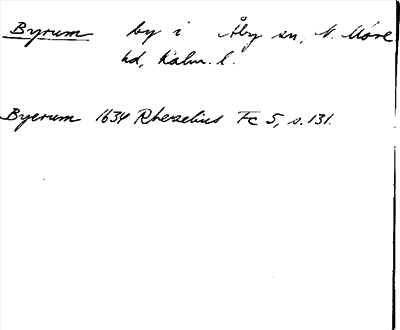 Byrum by i Åby sn, N. Möre
hd, Kalm. l.
Byerum 1634 Rhezelius Fc 5, s. 131.